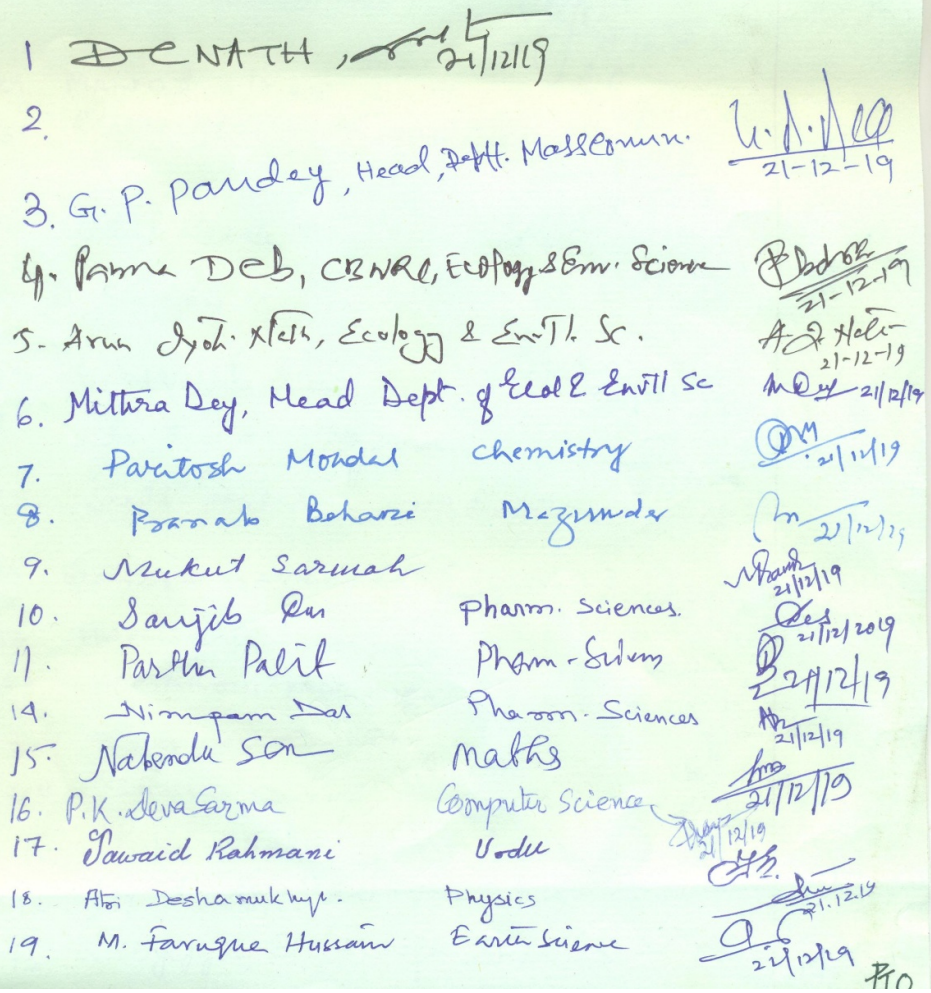 1 D C NATH, 21/12/19
2. 21-12-19
3. G. P. Pandey, Head, Deptt. Masscomm.
4. Panna DEB, CBNRC, Ecology & Env. Science 21-12-19
5- Arun Jyoti Nath, Ecology & Envtl. Sc. A.J. Nath 21-12-19
6. Mithra Dey, Head Dept. of Ecol & Envtl Sc MDey 21/12/19
7. Paritosh Mondal Chemistry 21/12/19
8. Pranab Behari Mazumder 21/12/19
9. Mukut Sarmah 21/12/19
10. Sanjib Das Pharm. Sciences. Das 21/12/2019
11. Partha Palit Pharm-Sciences 21/12/19
14. Nirupam Das Pharm. Sciences 21/12/19
15. Nabendu Sen Maths 21/12/19
16. P.K. Deva Sarma Computer Science 21/12/19
17. Jawaid Rahmani Urdu
18. Atri Deshamukhya. Physics 21.12.19
19. M. Faruque Hussain Earth Science 21/12/19
PTO